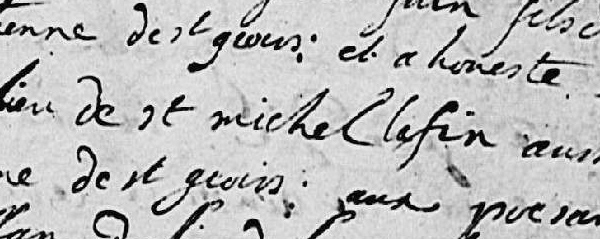 juin fils
enne de st geors: et a honeste
lieu de st michel lafin aussi
ne de st geors. aux presan